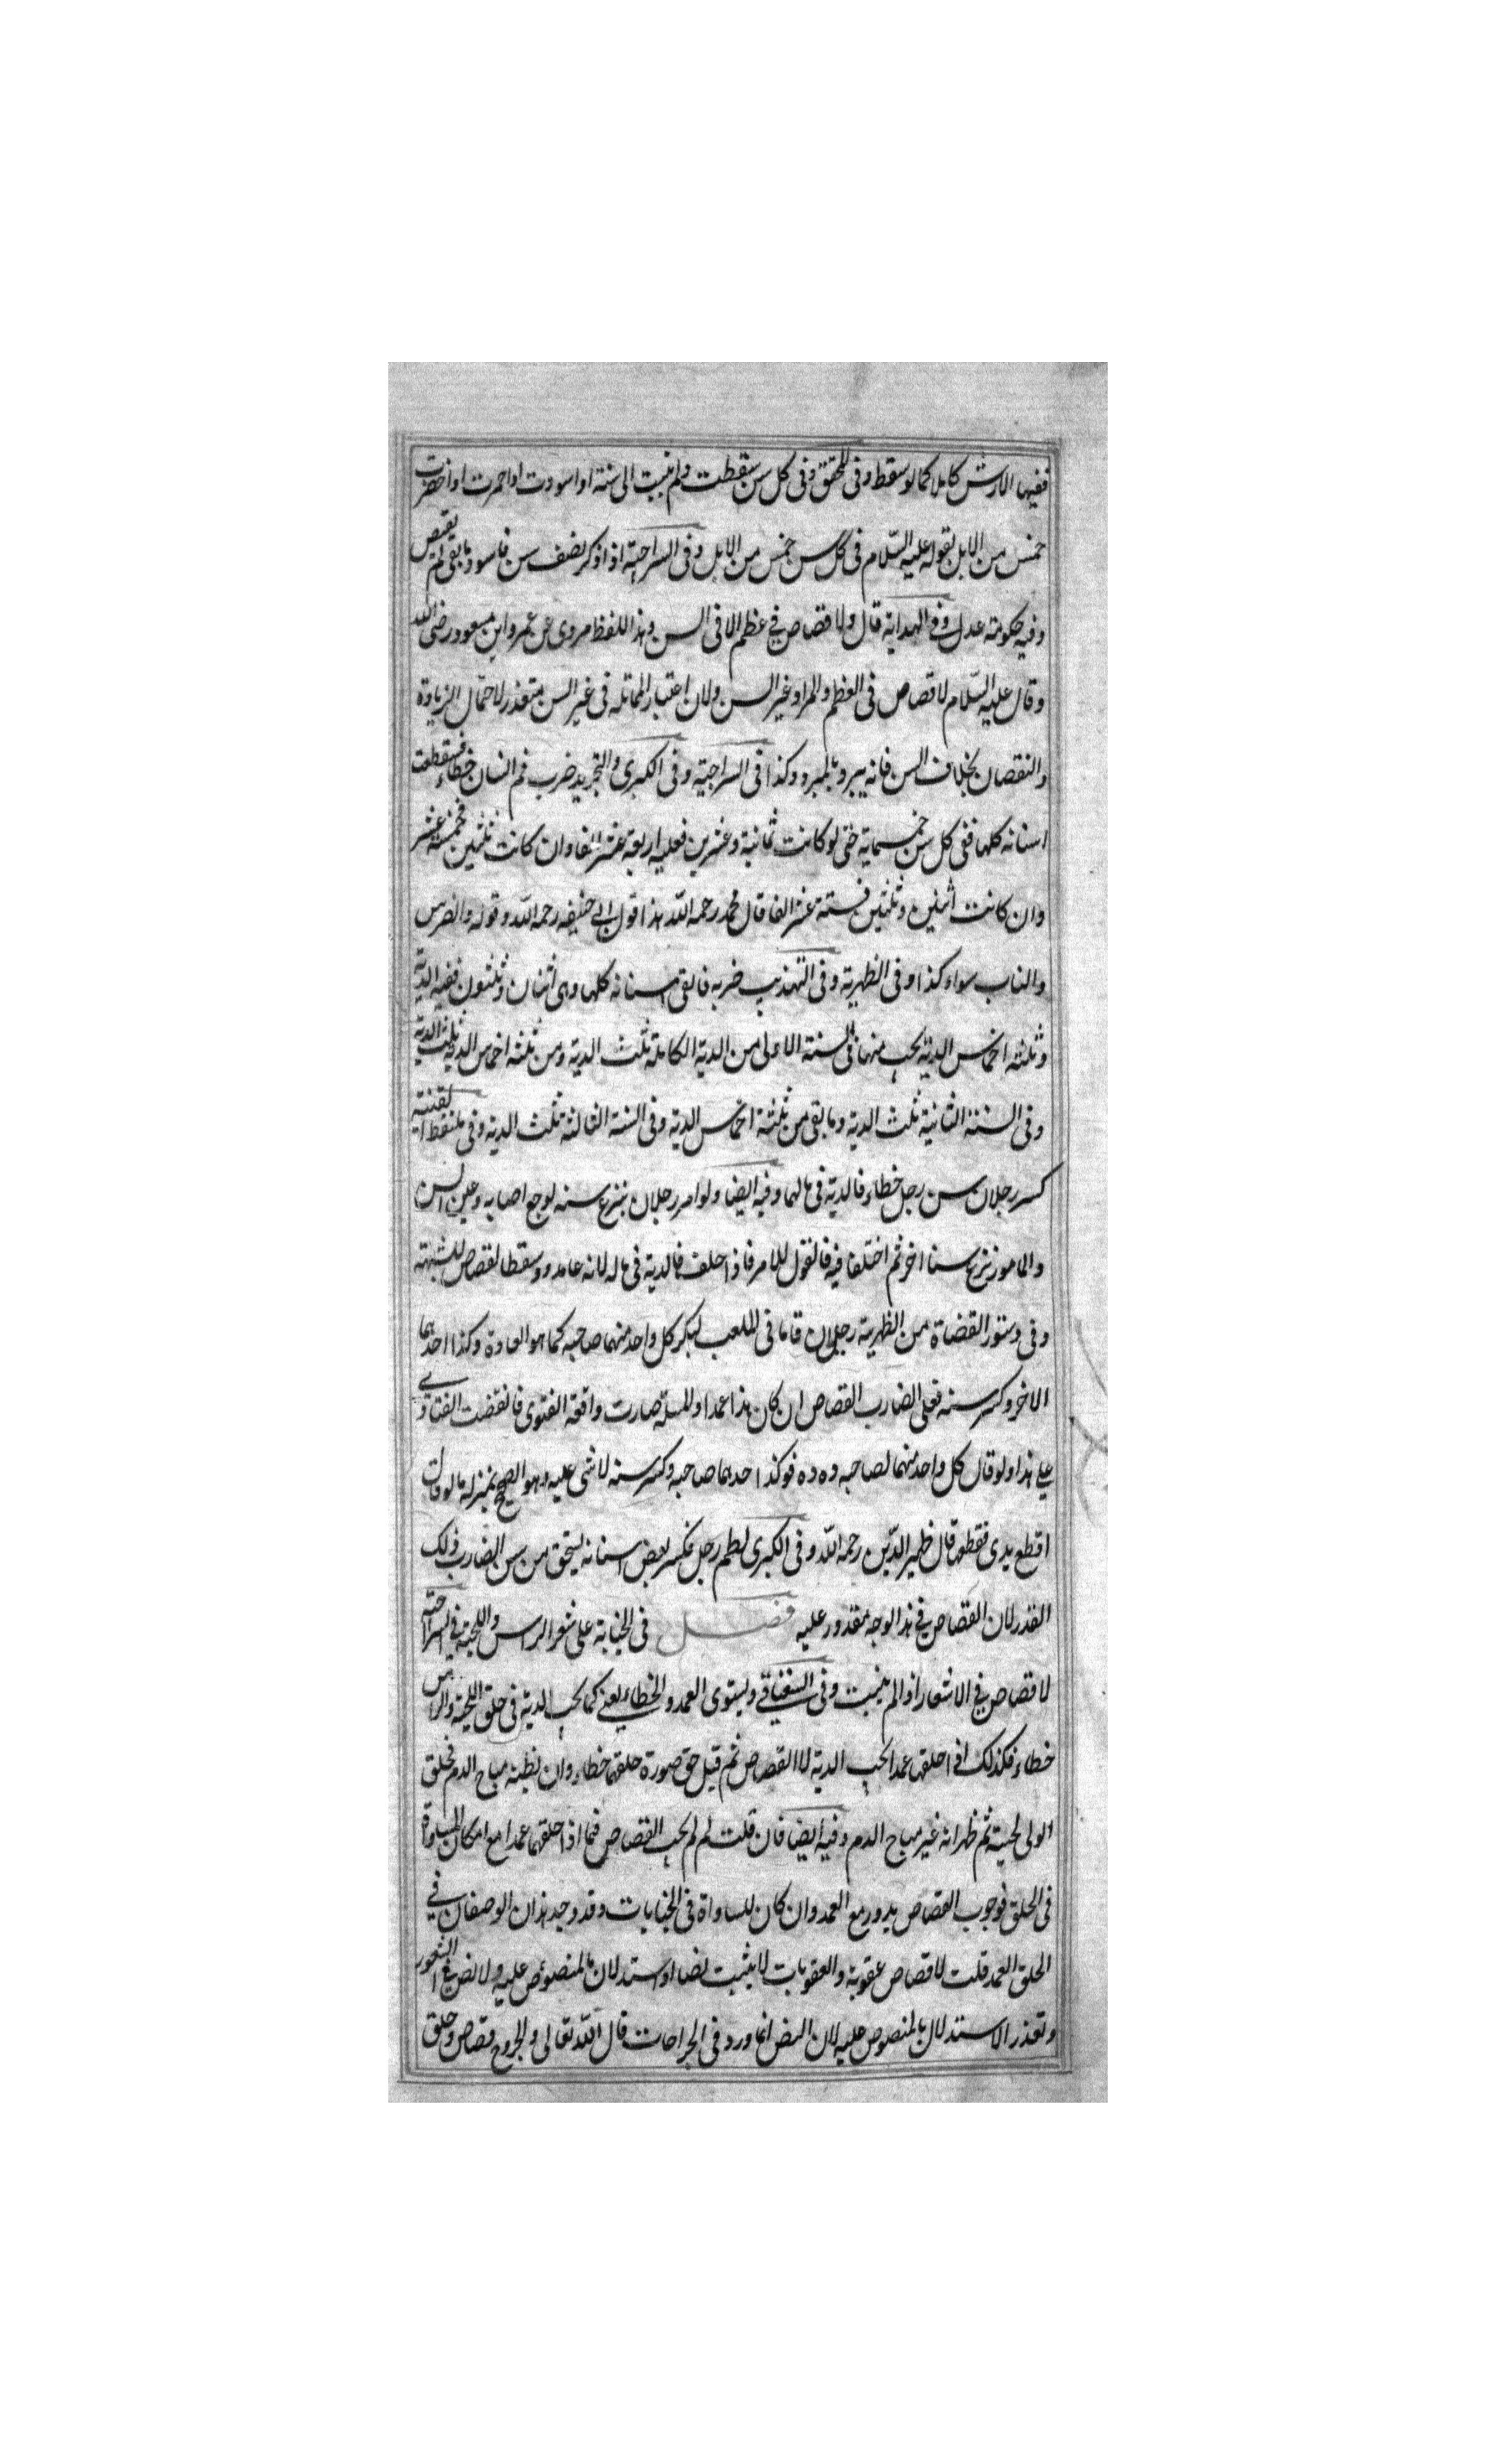 ففيها الارش كاملا كما لو سقط وفى المحقق وفى كل سن سقطت ولم تنبت الى سنة او اسودت او احمرت او اخضرت
خمس من الابل لقوله عليه السّلام فى كل سن خمس من الابل وفى السراجية اذا ذكر نصف سن فاسود ما بقى لم يقتص
وفيه حكومة عدل وفى الهداية قال ولا قصاص فى عظم الا فى السن وهذا اللفظ مروى عن عمر وابن مسعود رضى الله
وقال عليه السّلام لا قصاص فى العظم والمراد غير السن ولان اعتبار المماثله فى غير السن متعذر لاحتمال الزيادة
والنقصان بخلاف السن فانه يبرد بالمبرد وكذا فى السراجية وفى الكبرى والتجريد ضرب فم انسان خطاء فسقطت
اسنانه كلها ففى كل سن خمسماية حتى لو كانت ثمانية وعشرين فعليه اربعة عشر الفا وان كانت ثلثين فخمسة عشر
وان كانت اثنين وثلثين فستة عشر الفا قال محمد رحمه اللّه هذا قول ابى حنيفه رحمه اللّه وقوله والضرس
والناب سواء كذا وفى الظهيرية وفى التهذيب ضربه فالقى اسنانه كلها وهى اثنان وثلثون ففيه الدية
وثلثه اخماس الدية يجب منها فى السنة الاولى من الدية الكاملة ثلث الدية ومن ثلثه اخماس الدية ثلث الدية
وفى السنة الثانية ثلث الدية وما بقى من ثلثة اخماس الدية وفى السنة الثالثة ثلث الدية وفى القنية
كسر رجلان سن رجل خطاء فالدية فى مالهما وفيه ايضا ولو امر رجلان بنزع سنه لوجع اصابه وعين السن
والمامور نزع سنا اخر ثم اختلفا فيه فالقول للامر فاذا حلف فالدية فى ماله لانه عامد وسقط القصاص للشبهة
وفى دستور القضاة من الظهرية رجلان قاما فى اللعب لبكر كل واحد منهما صاحبه كما هو العادة وكذا احدهما
الاخر وكسر سنه فعلى الضارب القصاص ان كان هذا عمدا والمسلة صارت واقعة الفتوى فانقضت الفتاوى
على هذا ولو قال كل واحد منهما لصاحبه ده ده فوكذ احدهما صاحبه وكسر سنه لا شى عليه وهو الصحيح بمنزلة ما لو قال
اقطع يدى فقطعه قال ظهير الدّين رحمه اللّه وفى الكبرى لطم رجل فكسر بعض اسنانه يستحق من سن الضارب ذلك
القدر لان القصاص فى هذا الوجه مقدور عليه فصل فى الجناية على شعر الراس واللحية فى السراجية
لا قصاص فى الاشعار اذا لم ينبت وفى السغناقى ويستوى العمد والخطاء يعنى كما يجب الدية فى حلق اللحية والراس
خطاء فكذلك اذا حلقها عمدا يجب الدية لا القصاص ثم قيل حق صورة حلقها خطاء وان يظنه مباح الدم فحلق
الولى لحيته ثم ظهر انه غير مباح الدم وفيه ايضا فان قلت لم لم يجب القصاص فيما اذا حلقهما عمدا مع امكان المساواة
فى الحلق فوجوب القصاص يدور مع العمد وان كان المساواة فى الجنايات وقد وجد هذان الوصفان فى
الحلق العمد قلت لا قصاص عقوبة والعقوبات لا يثبت نصا او استدلالا بالمنصوص عليه ولا نص فى الشعور
وتعذر الاستدلال بالمنصوص عليه لان النص انما ورد فى الجراحات قال اللّه تعالى والجروح قصاص وحلق